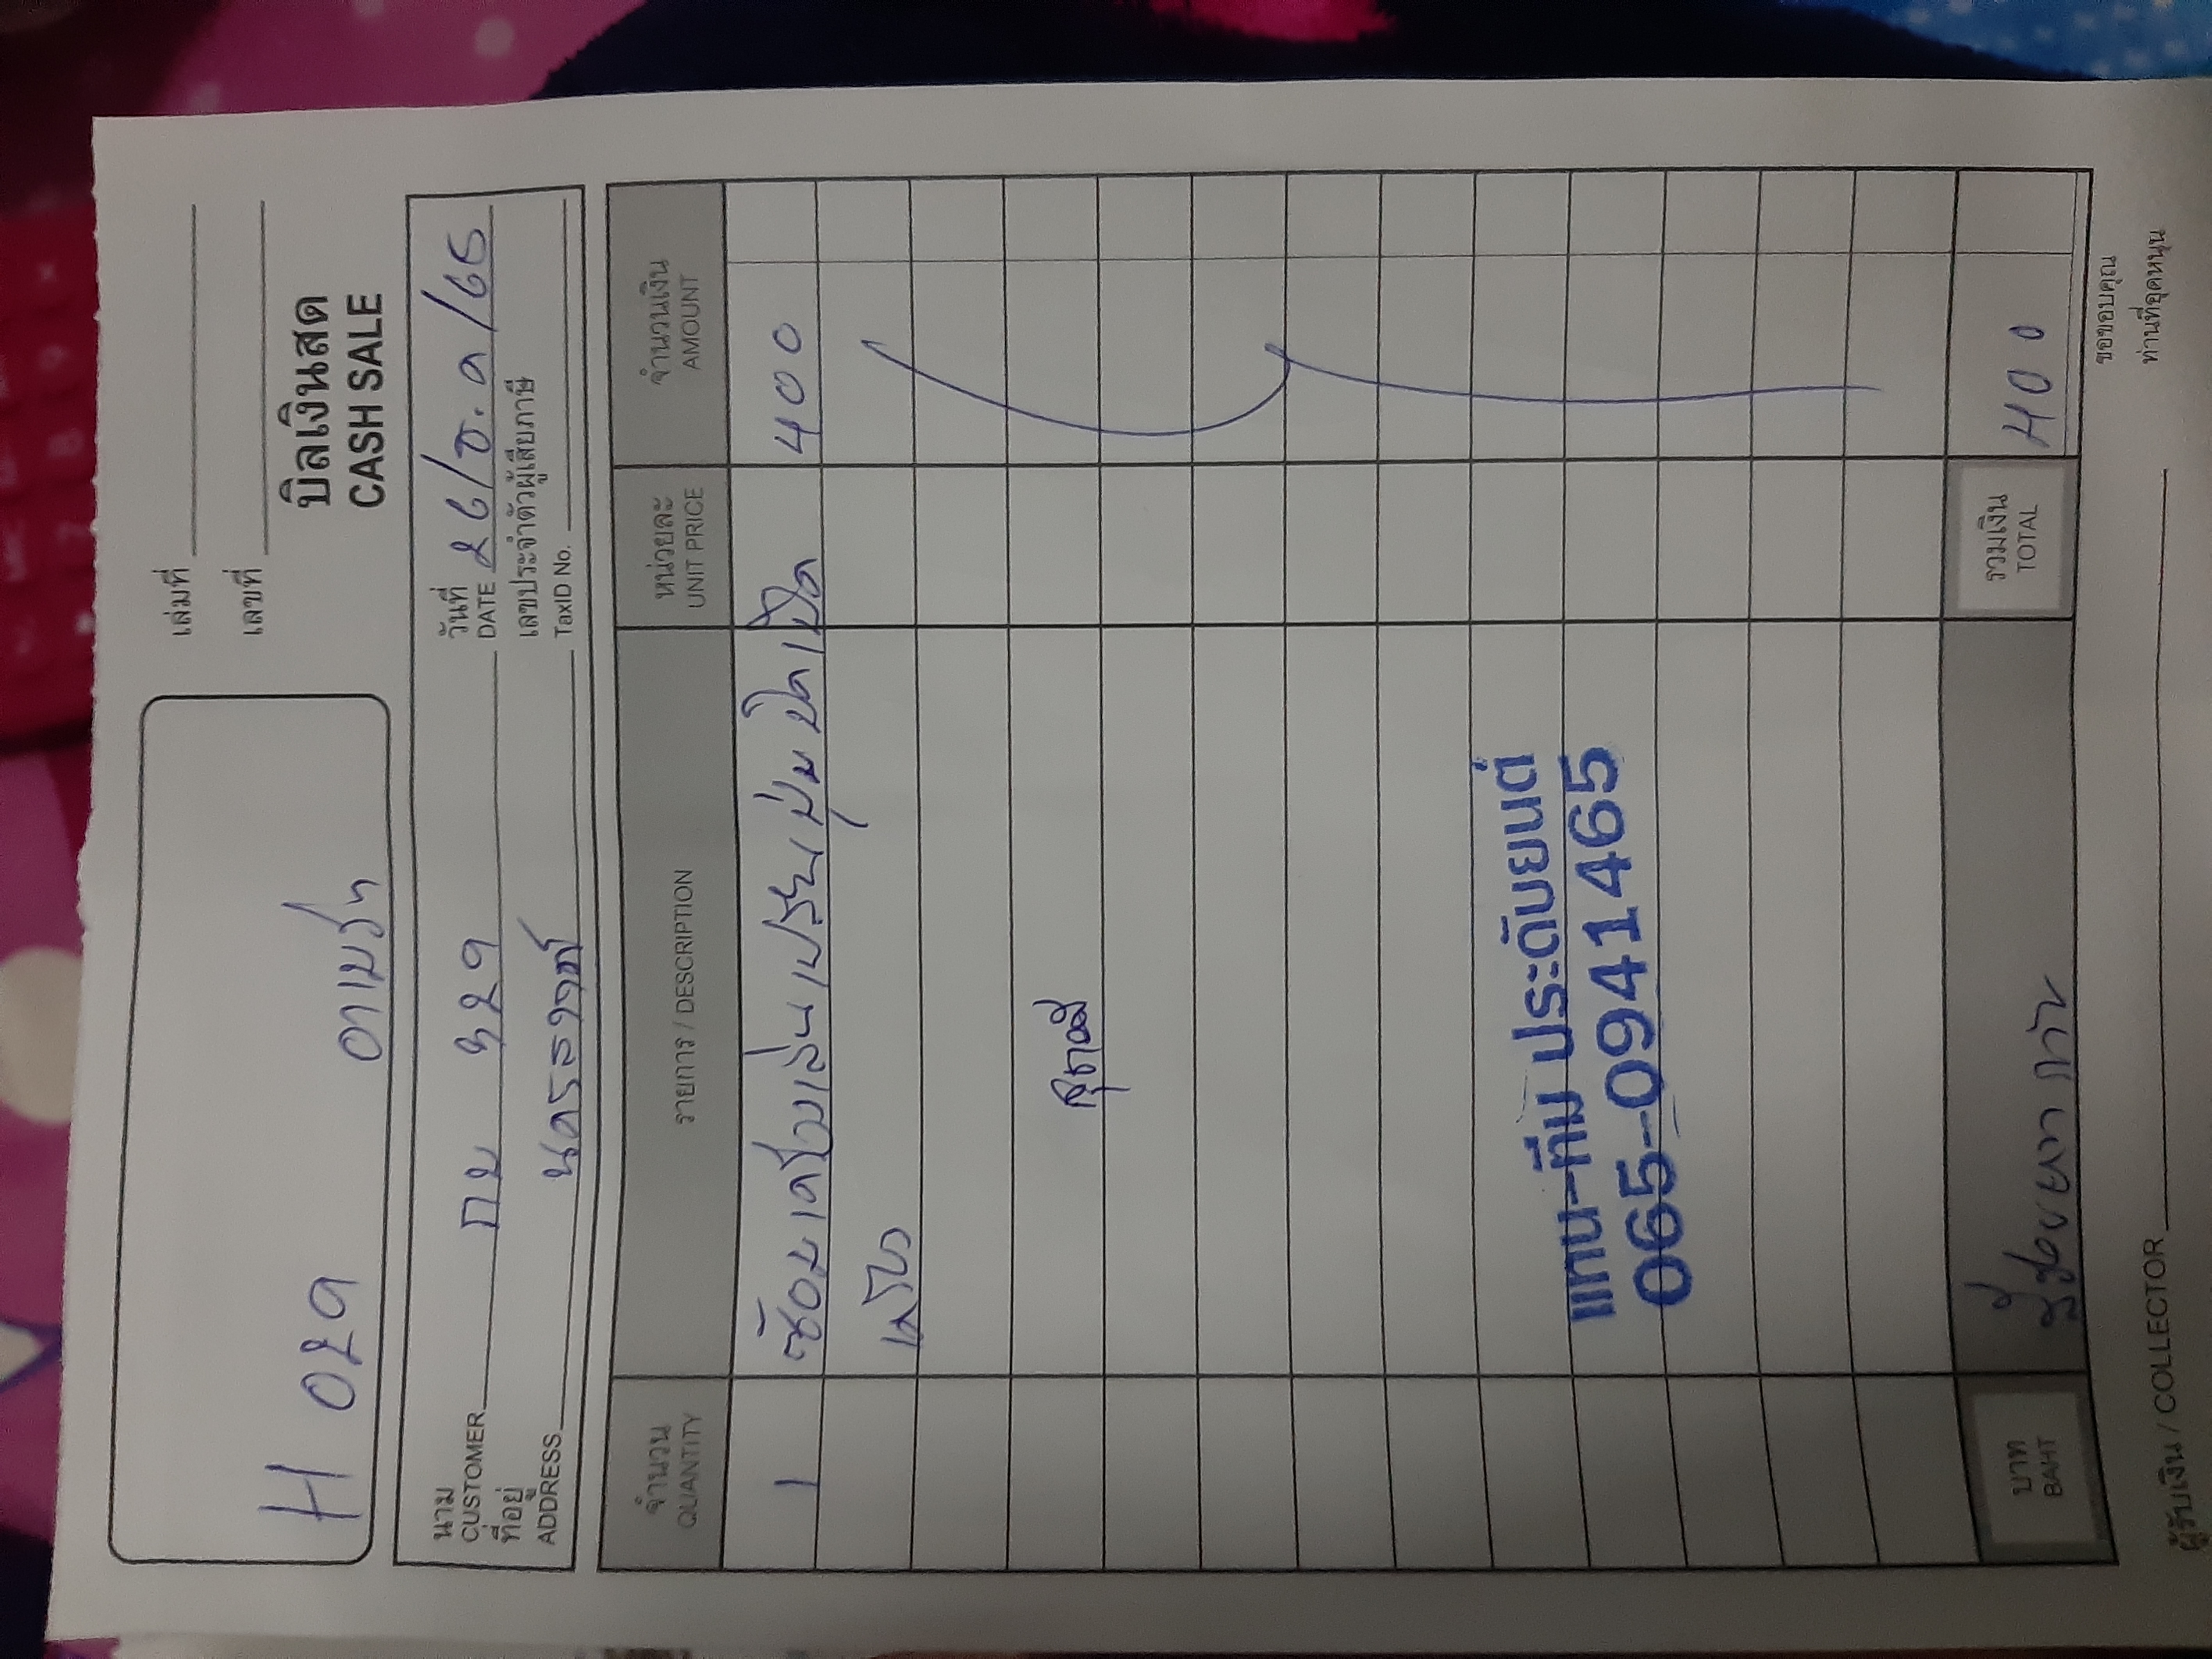 เล่มที่
เลขที่
H 029
บิลเงินสด
CASH SALE
นาม
CUSTOMER กบ 929
วันที่
DATE 26/ต.ค/65
ที่อยู่
ADDRESS
เลขประจำตัวผู้เสียภาษี
TaxID No.
จำนวน
QUANTITY
รายการ / DESCRIPTION
หน่วยละ
UNIT PRICE
จำนวนเงิน
AMOUNT
1 ซ้อมเครื่องเล่น เปลี่ยนปุ่มปิดเปิด 400
แทน-ทีม ประดับยนต์
065-0941465
บาท
BAHT
สี่ร้อยบาทถ้วน
รวมเงิน
TOTAL
400
ผู้รับเงิน / COLLECTOR
ขอขอบคุณ
ท่านที่อุดหนุน